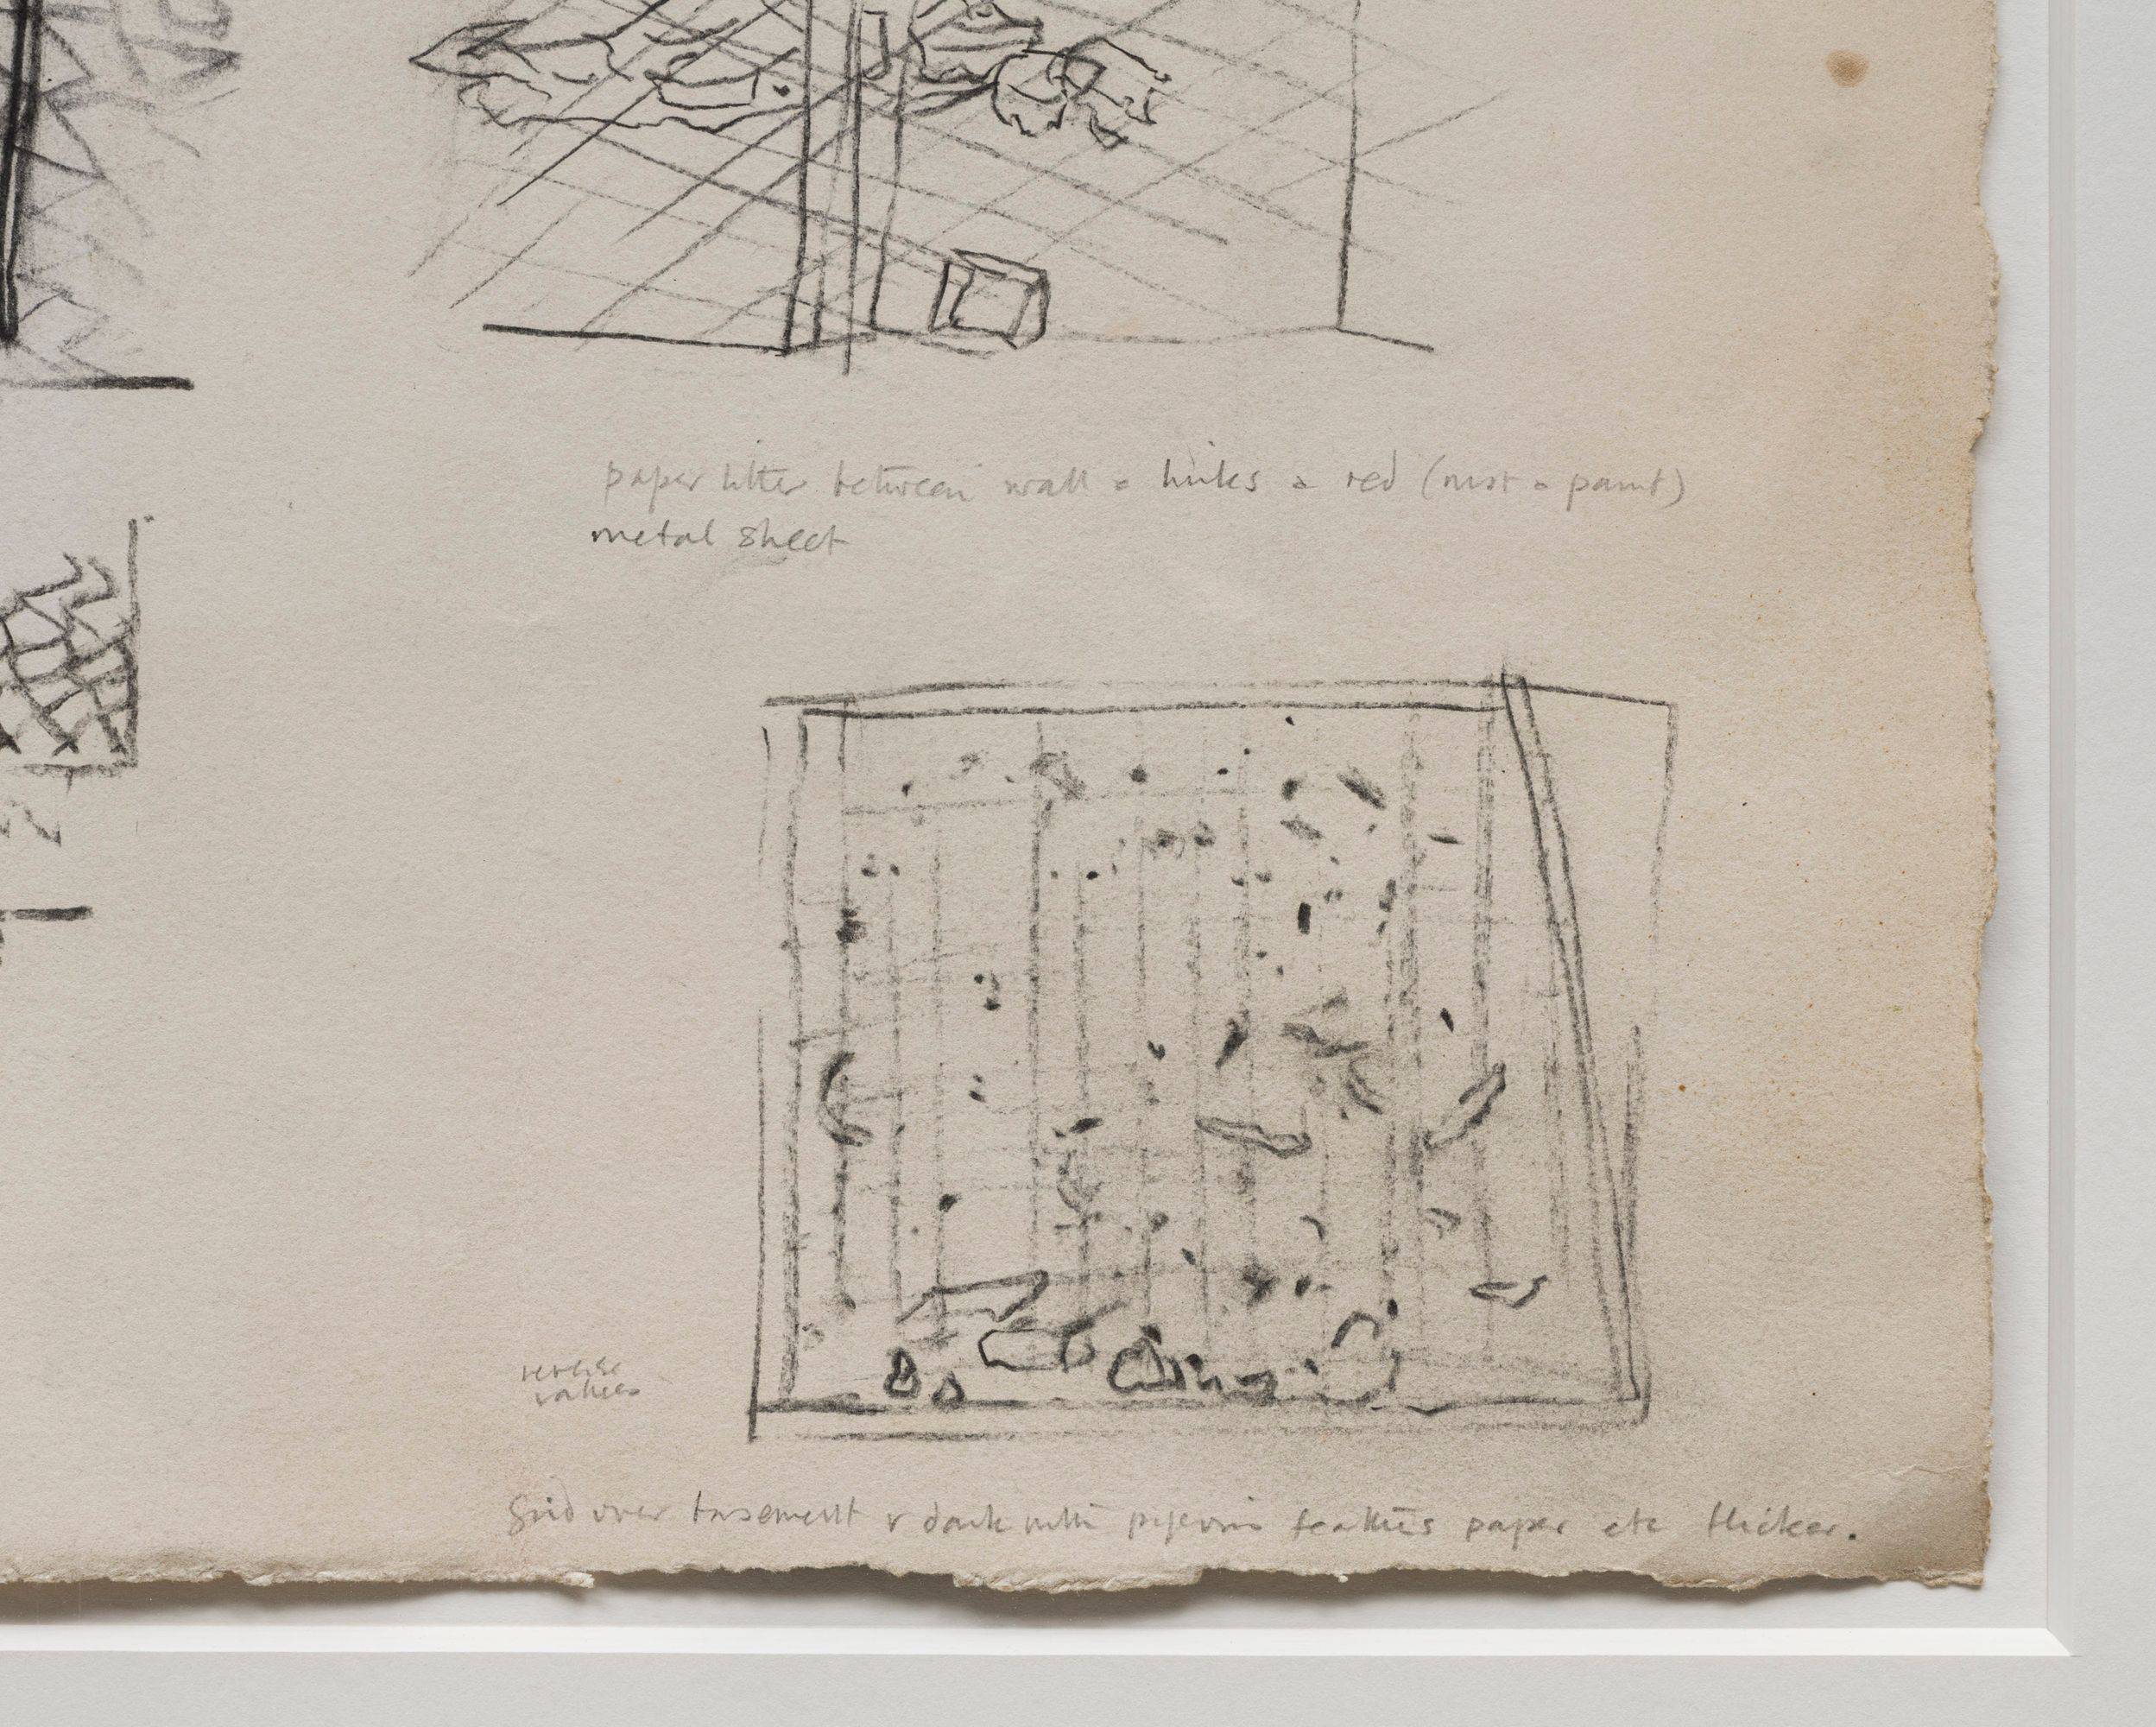 paper litter between wall & links & red (rust & paint)
metal sheet
reverse
values
Grid over basement v dark with pigeons feathers paper etc thicker.